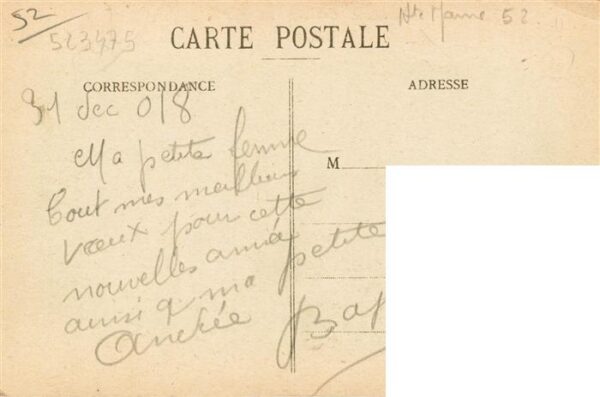 52
523475
Hte Marne 52
CARTE POSTALE
CORRESPONDANCE
ADRESSE
31 dec 018
Ma petite femme
tout mes meilleurs
vœux pour cette
nouvelles année
ainsi q ma petite
Andrée
M